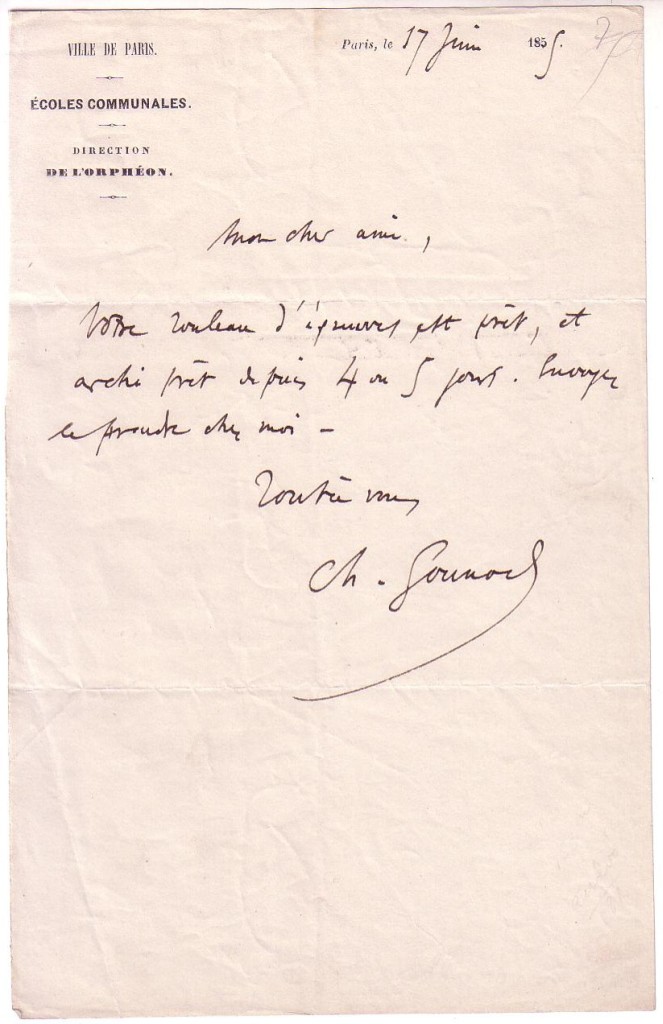 VILLE DE PARIS.
Paris, le 17 Juin 1855.
ÉCOLES COMMUNALES.
DIRECTION
DE L'ORPHÉON.
Mon cher ami,
Votre rouleau d'épreuves est prêt, et
archi prêt depuis 4 ou 5 jours. Envoyez
le prendre chez moi –
Tout à vous
Ch. Gounod